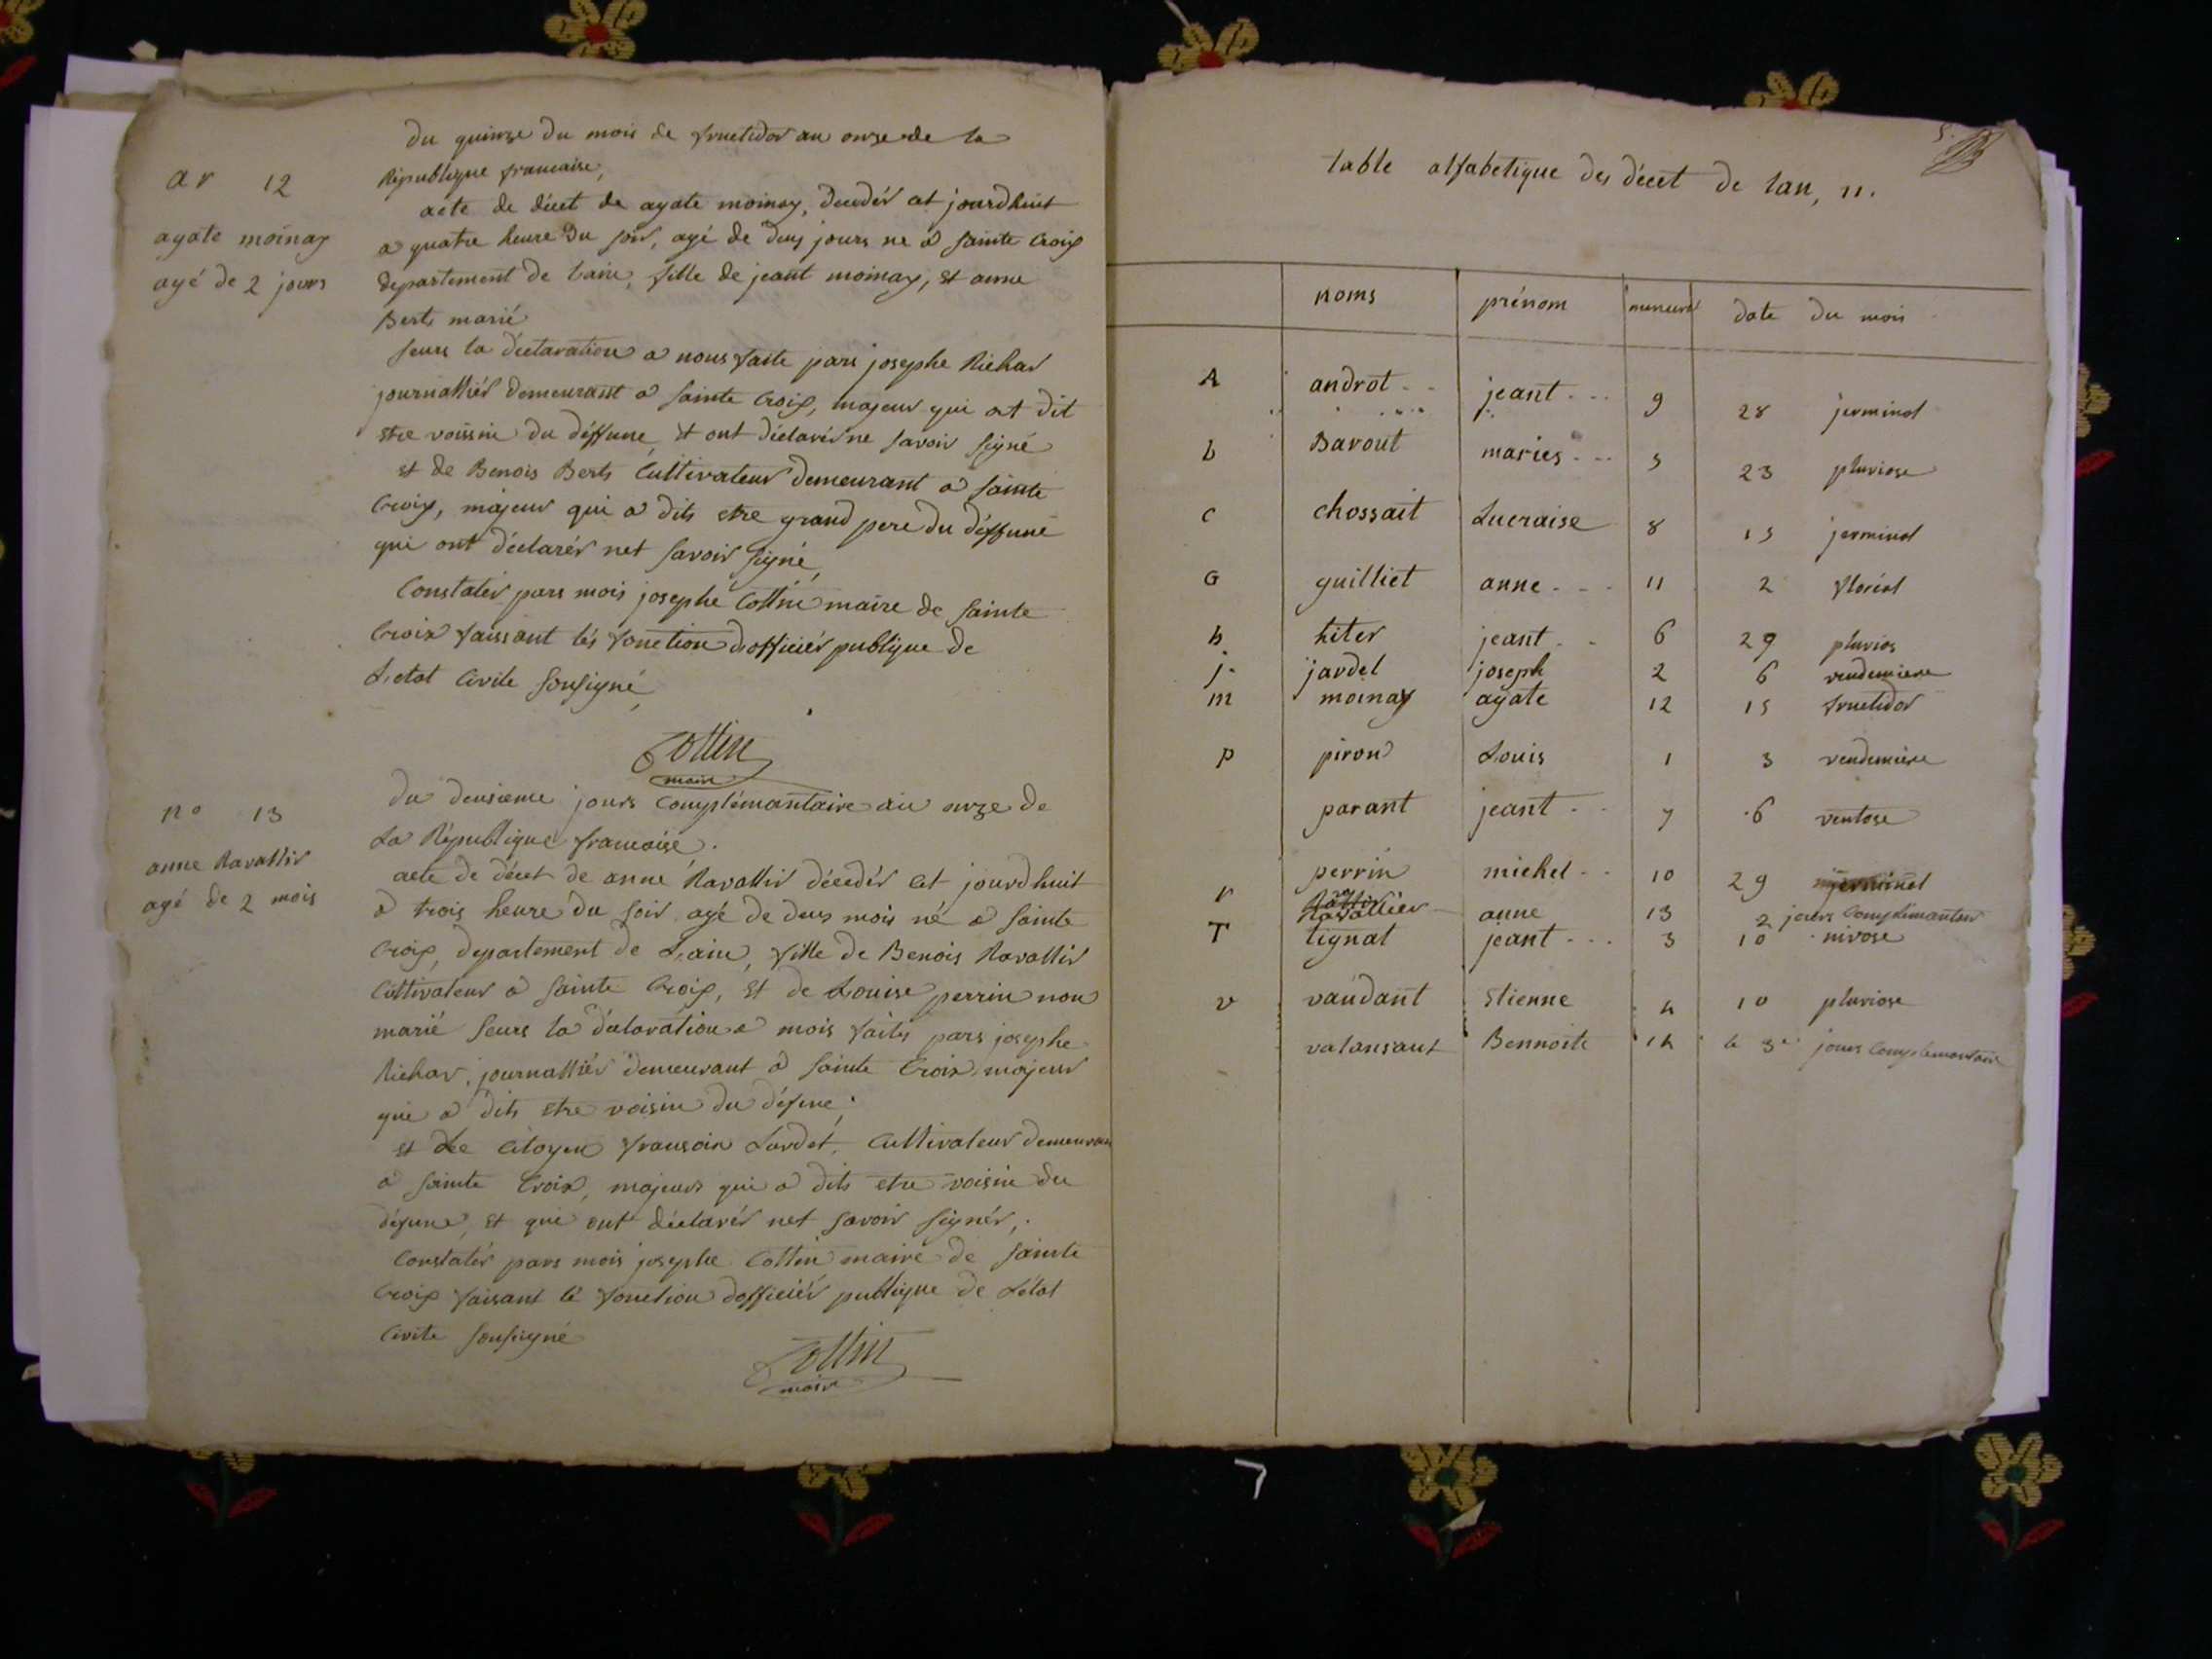 du quinze du mois de fructidor an onze de la
République francaise,
ar 12
acte de décet de agate moinay, decedér cet jourdhuit
agate moinay
a quatre heure du soir, agé de deus jours ne a sainte Croix
agé de 2 jours
departement de lain, fille de jeant moinay, et anne
Berts marié
seurs la déclaration a nous faite pars josephe Richar
journalliér demeurant a sainte Croix, majeur qui ont dit
etre voissin du déffune, et ont déclarér ne savoir signé
et de Benois Berts Cultivateur demeurant a sainte
Croix, majeur qui a dits etre grand pere du déffune
qui ont déclarér net savoir signé,
Constatér pars mois josephe Cottin maire de sainte
Croix faissant lés fonction dofficiér publique de
L'etat Civile sousigné,
Cottin
maire
n° 13
du deusieme jours Complémantaire an onze de
La République francaise.
anne Ravallir
agé de 2 mois
acte de décet de anne Ravallir décedér cet jourdhuit
a trois heure du soir agé de deus mois né a sainte
Croix, departement de L'ain, fille de Benois Ravallir
Cultivateur a sainte Croix, et de Louise perrin non
marié seurs la déclaration a mois faites pars josephe
Richar, journalliér demeurant a sainte Croix majeur
qui a dits etre voisin du défune,
et de Citoyen fransoix Lardet, Cultivateur demeuran
a sainte Croix, majeurs qui a dits etre voisin du
défune, et qui ont déclarér net savoir signér,
Constatér pars mois josephe Cottin maire de sainte
Croix faisant lé fonction dofficiér publique de L'état
Civile sousigné
Cottin
maire
table alfabetique des décet de lan, 11.
noms prénom date du mois
A androt jeant 9 28 jerminal
b Barout maries 5 23 pluviose
C chossait Lucraise 8 15 jerminal
G guilliet anne 11 2 floréal
h hiter jeant 6 29 pluvios
j jardel joseph 2 6 vendemiere
m moinay agate 12 15 fructidor
p piron Louis 1 3 vendemiere
parant jeant 7 6 ventose
perrin michel 10 29 jerminal
r Ravallier anne 13 2 jours Complémantair
T tignat jeant 3 10 nivose
v vaudant Etienne 4 10 pluviose
valansant Bennoite 14 le 3e jours Complemantaire